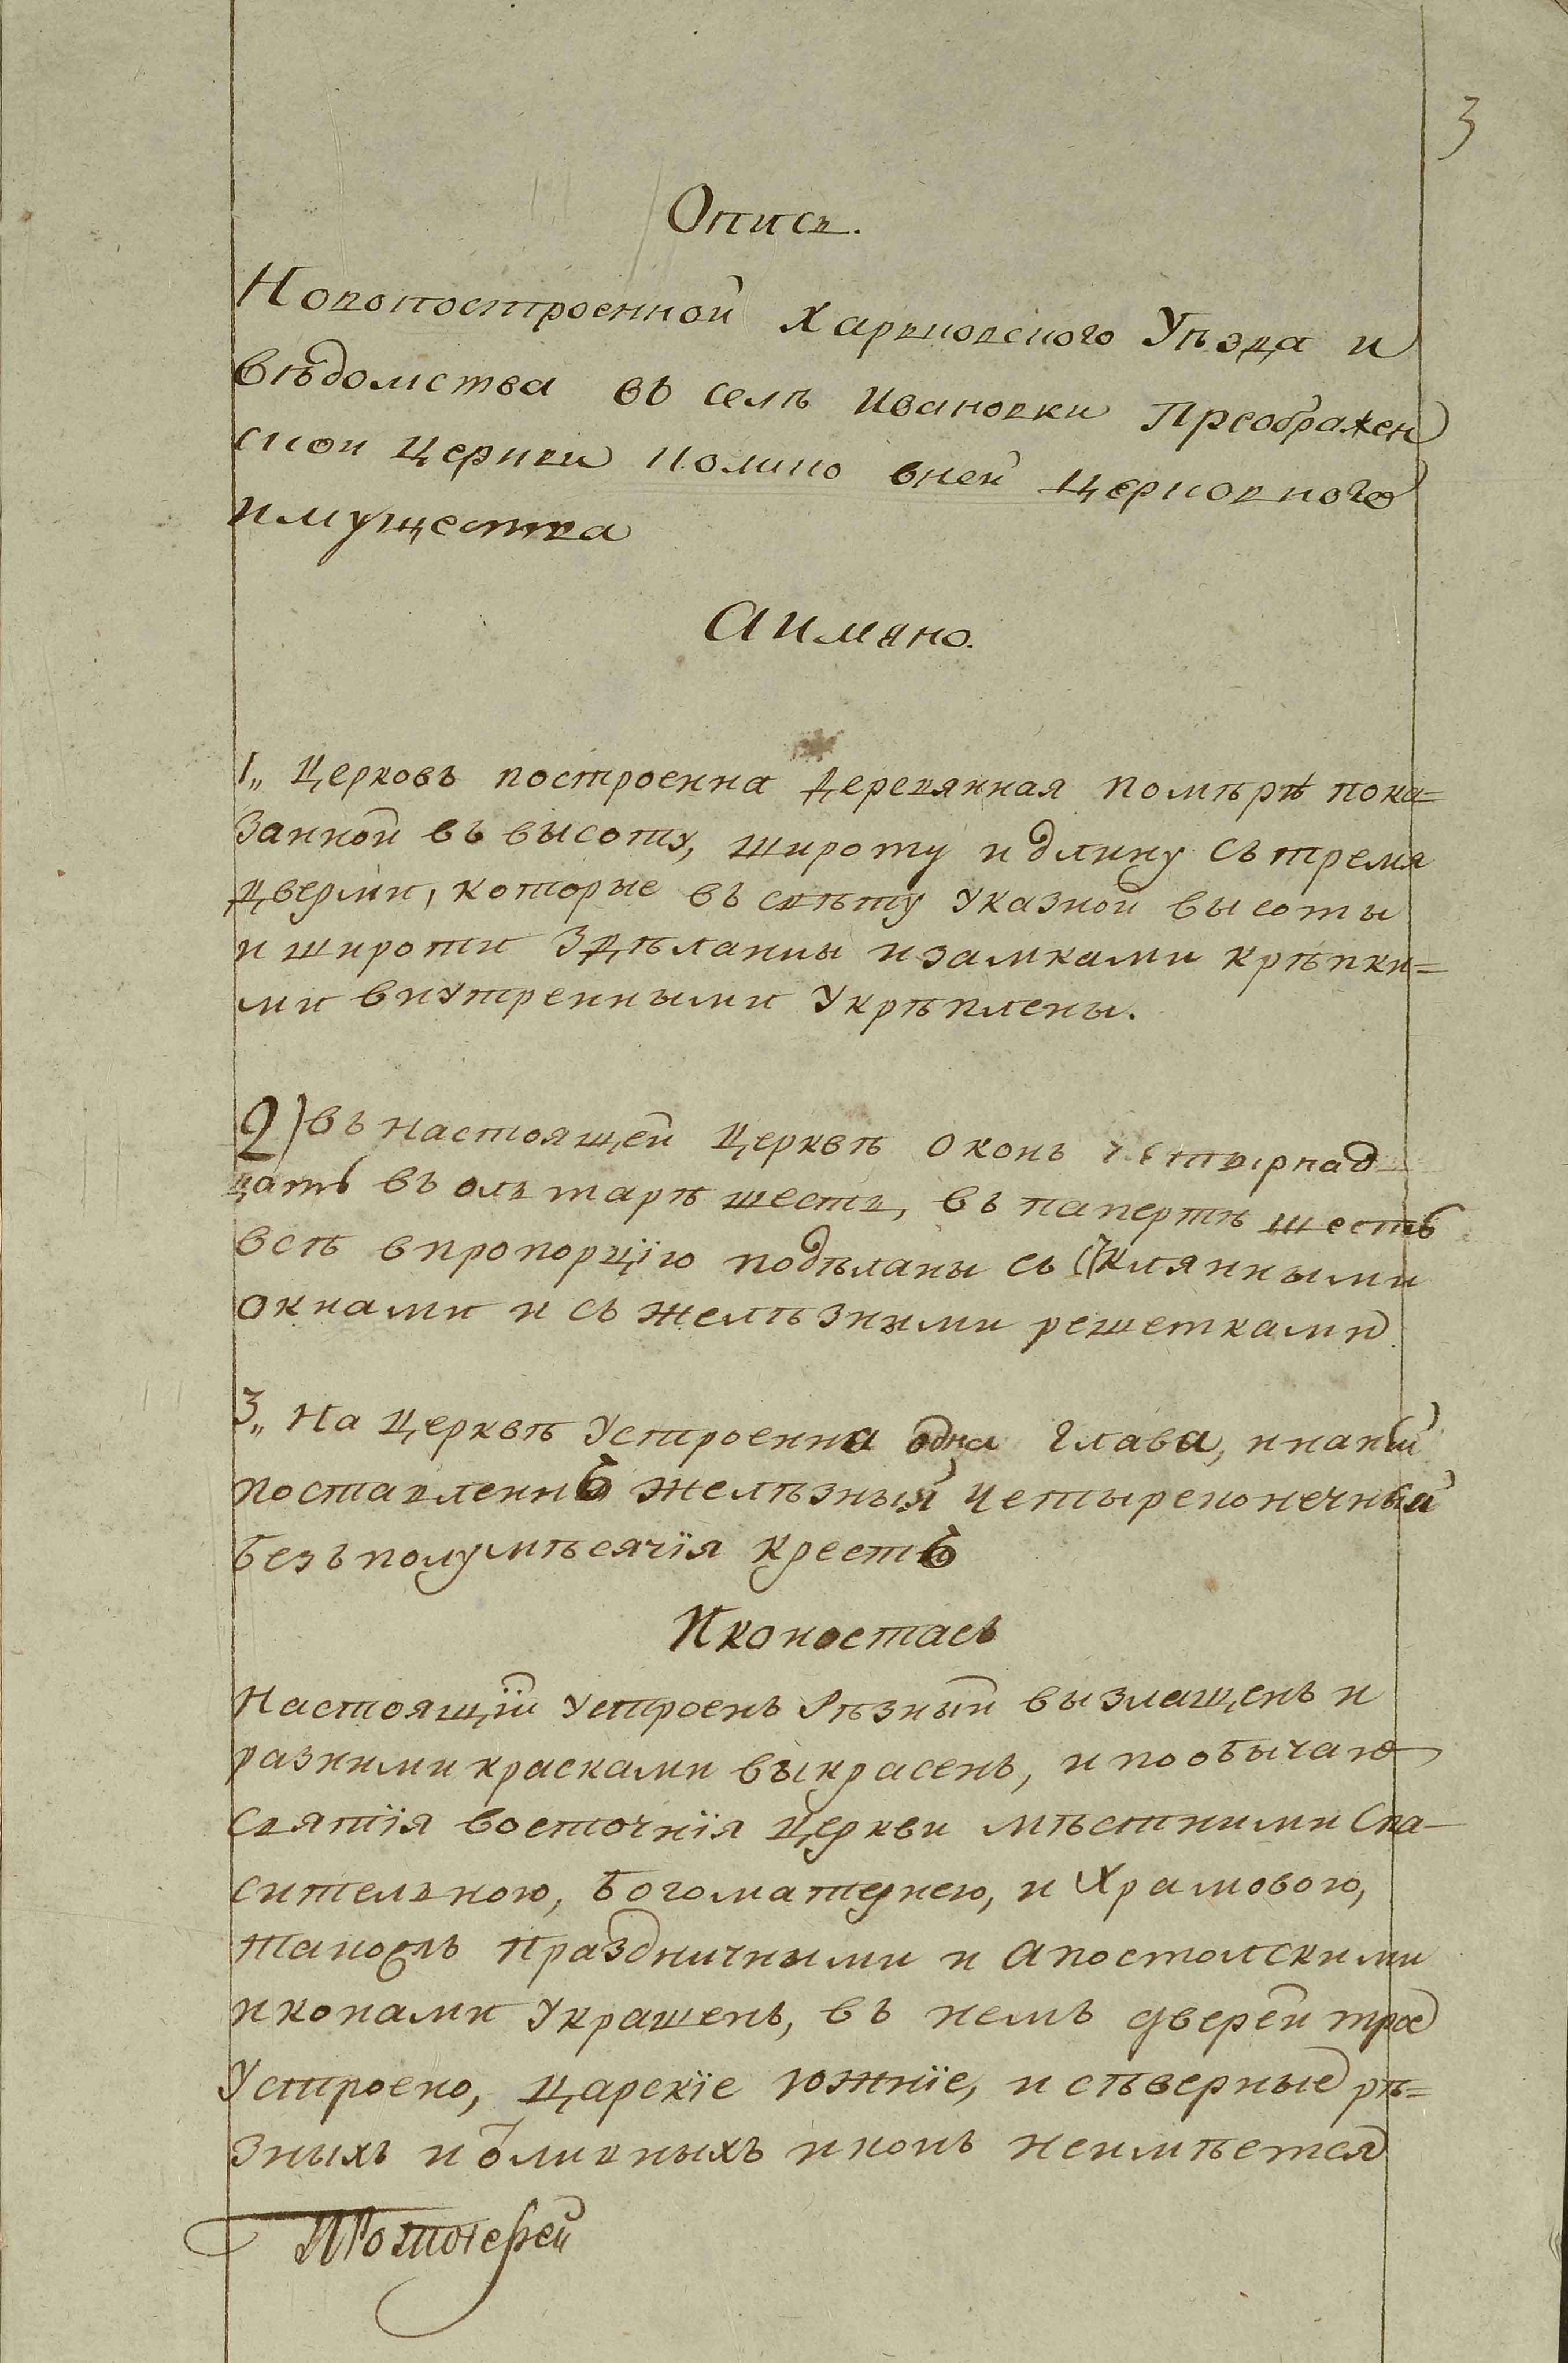 3
Опись.
Новопостроенной Харковского Уѣзда и
вѣдомства въ селѣ Ивановки Преображен
ской Церкви колико вней Церковного
имущества
Аимяно.
1„ Церковъ построенна деревянная помѣрѣ пока=
занной въ высоту, широту и длину съ тремя
дверми, которые въ свѣту указной высоты
и широти здѣланы изамками крѣпки=
ми внутренными укрѣплены.
2) въ настоящей церквѣ оконъ четырнад
цать въ олтарѣ шесть, въ папертѣ шесть
всѣ впропорцїю подѣланы съ склянными
окнами и съ желѣзними решетками
3„ На Церквѣ Устроенна одна глава, инаний
поставленнъ желѣзный четыреконечный
безъ полумѣсячїя крестъ
Иконостасъ
Настоящїй устроенъ рѣзный вызлащенъ и
разними красками выкрасенъ, и пообычаю
святїя восточнїя церкви мѣстними Спа-
сительною, Богоматернею, и Храмовою,
такожъ праздничными и апостолскими
иконами украшенъ, въ немъ дверей трое
Устроено, царскїе южнїе, и сѣверные рѣ=
зныхъ и ѿливныхъ иконъ неимѣется
Протоіерей